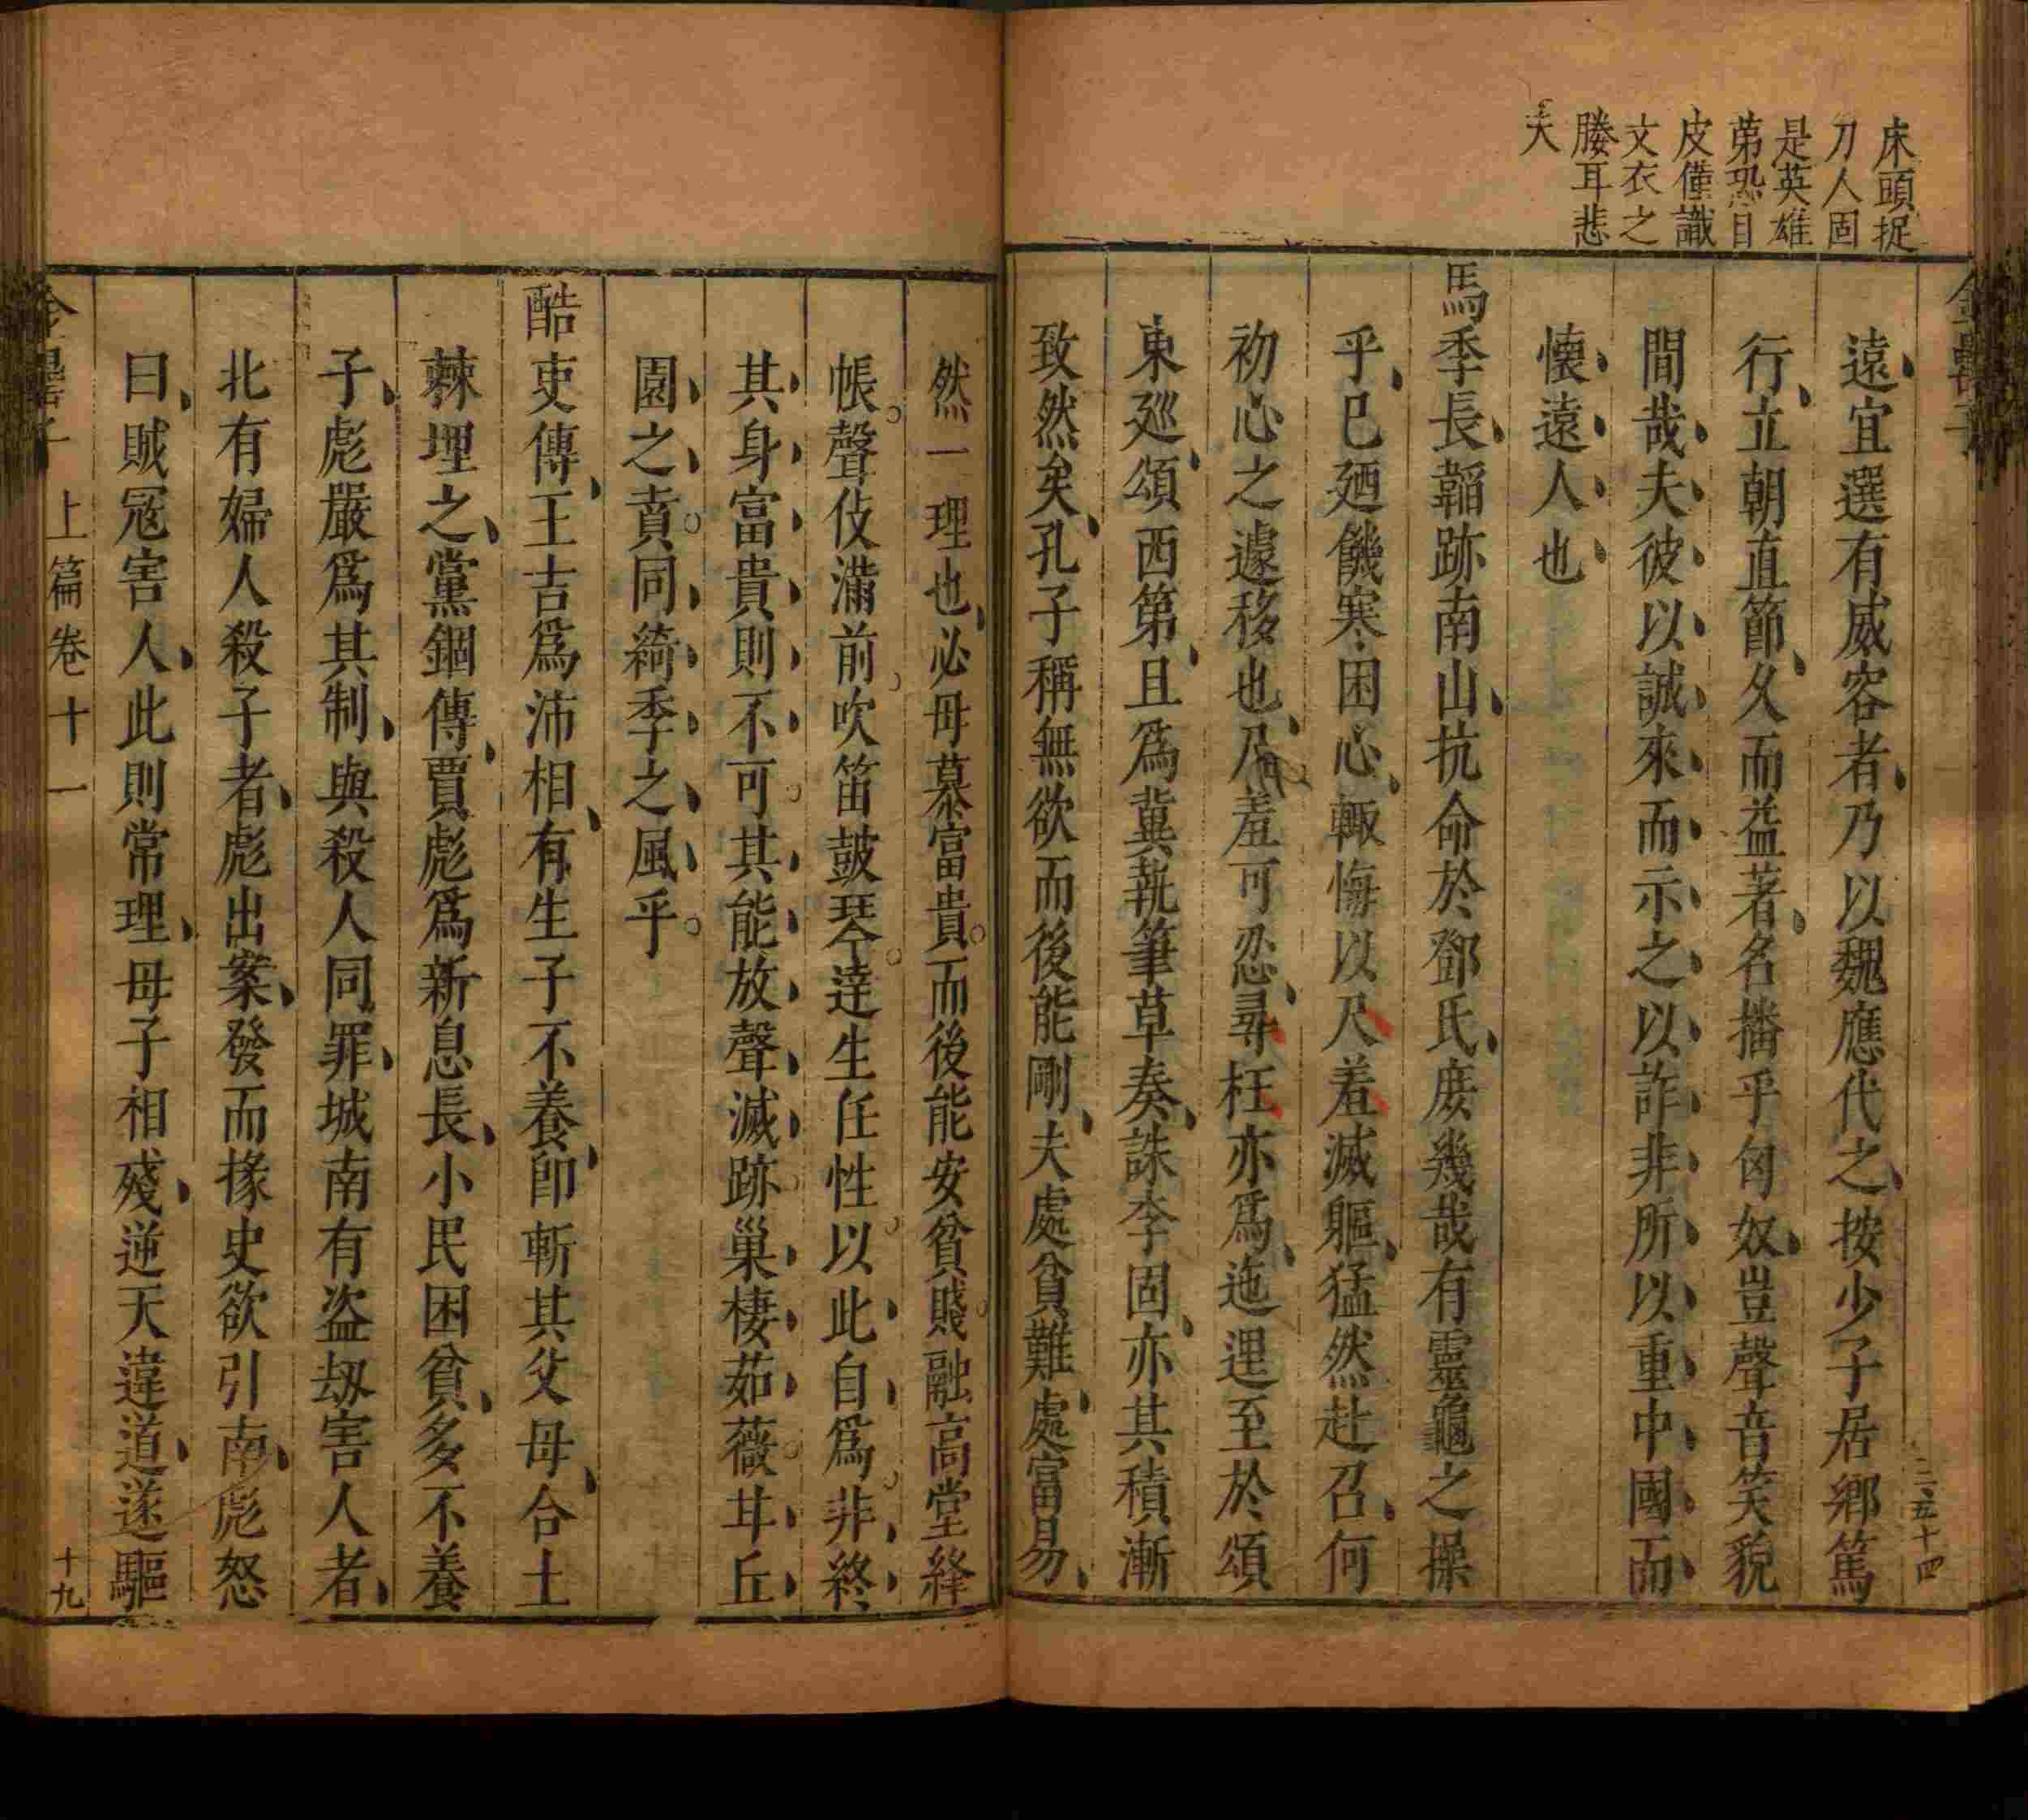 床頭捉
刀人固
是英雄
苐恐目
皮僅識
文衣之
媵耳悲
夫
遠宜選有威容者乃以魏應代之按少子居鄉篤
行立朝直節久而益著名播乎匈奴豈聲音笑貌
間哉夫彼以誠來而示之以詐非所以重中國而
懷遠人也
馬季長韜跡南山抗命於鄧氏庶幾哉有靈龜之操
乎已廼饑寒困心輙悔以尺羞滅軀猛然赴召何
初心之遽移也乃羞可忍尋枉亦為迤逕至於頌
東廵頌西第且為冀執筆草奏誅李固亦其積漸
致然矣孔子稱無欲而後能剛夫處貧難處富易
然一理也必毋慕富貴而後能安貧賤融高堂絳
帳聲伎滿前吹笛鼓琴達生任性以此自為非終
其身富貴則不可其能放聲滅跡巢棲茹薇丘
園之賁同綺季之風乎
酷吏傳王吉為沛相有生子不養卽斬其父母合土
棘埋之黨錮傳賈彪為新息長小民困貧多不養
子彪嚴為其制與殺人同罪城南有盜刼害人者
北有婦人殺子者彪出案發而掾史欲引南彪怒
曰賊寇害人此則常理母子相殘逆天違道遂驅
上篇卷十一
十九